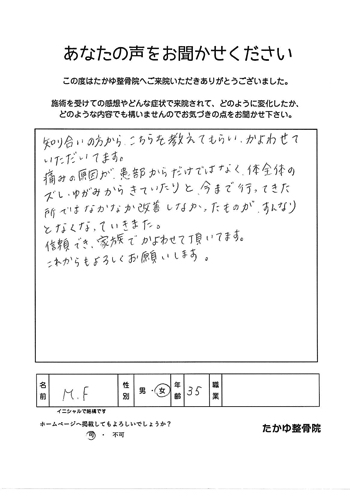 あなたの声をお聞かせください
この度はたかゆ整骨院へご来院いただきありがとうございました。
施術を受けての感想やどんな症状で来院されて、どのように変化したか、
どのような内容でも構いませんのでお気づきの点をお聞かせ下さい。
知り合いの方から、こちらを教えてもらい、かよわせて
いただいてます。
痛みの原因が、患部からだけではなく、体全体の
ズレ・ゆがみからきていたりと、今まで行ってきた
所ではなかなか改善しなかったものが、すんなり
となくなっていきました。
信頼でき、家族でかよわせて頂いてます。
これからもよろしくお願いします。
名前 M.F 性別 男・女 年齢 35 職業
イニシャルで結構です
ホームページへ掲載してもよろしいでしょうか?
可 ・ 不可
たかゆ整骨院